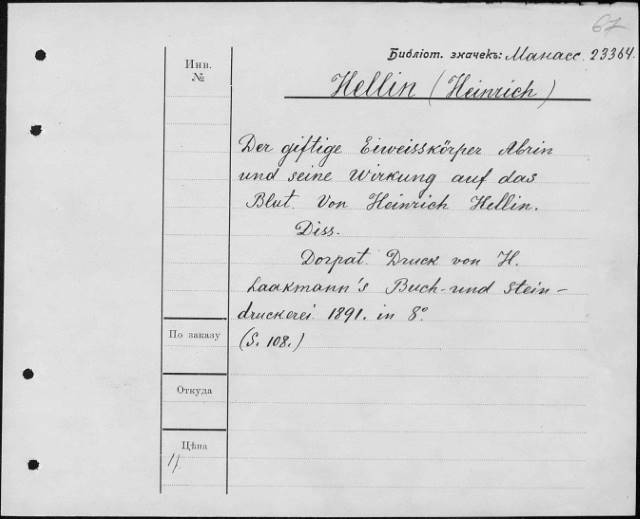 67
Библіот. значекъ: Манасс. 23364.
Инв.
№
Hellin (Heinrich)
Der giftige Eiweisskörper Abrin
und seine Wirkung auf das
Blut. Von Heinrich Hellin.
Diss.
Dorpat. Druck von H.
Laakmann's Buch- und Stein-
druckerei 1891. in 8°
(S. 108.)
По заказу
Откуда
Цѣна